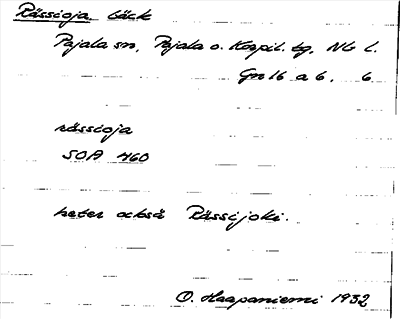 Rässioja bäck
Pajala sn, Pajala o. Korpil. tg, Nb l.
Gn 16 a 6. 6.
rässioja
SOA 460
heter också Rässijoki.
O. Haapaniemi 1932